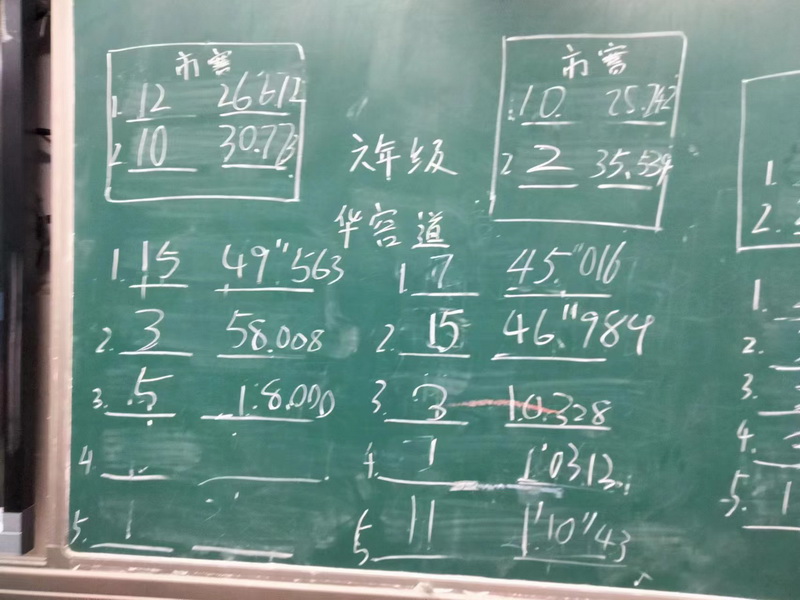 市赛
1. 12 26"672
2. 10 30.773
市赛
1. 10. 25.242
2. 2 35.534
六年级
华容道
1. 15 49"563
2. 3 58.008
3. 5 1.8.000
4.
5. 1
1. 7 45."016
2. 15 46."984
3. 3 10.328
4. 1 1'03.12
5. 11 1'10"43
1.
2.
1.
2.
3.
4.
5. 1